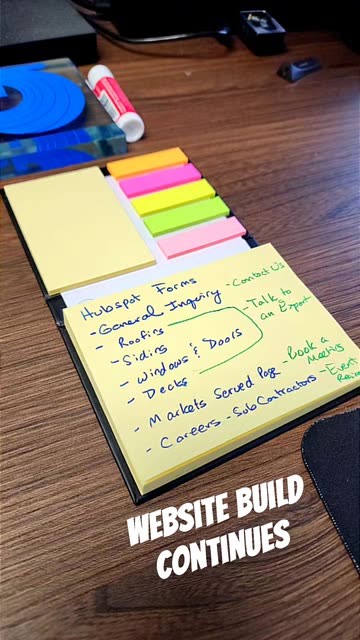 Hubspot Forms
- General Inquiry - Contact Us
- Roofing
- Siding
- Windows & Doors
- Decks
- Talk to
an Expert
- Markets Served Page
Book a
Meeting
- Careers - SubContractors - Event
WEBSITE BUILD
CONTINUES